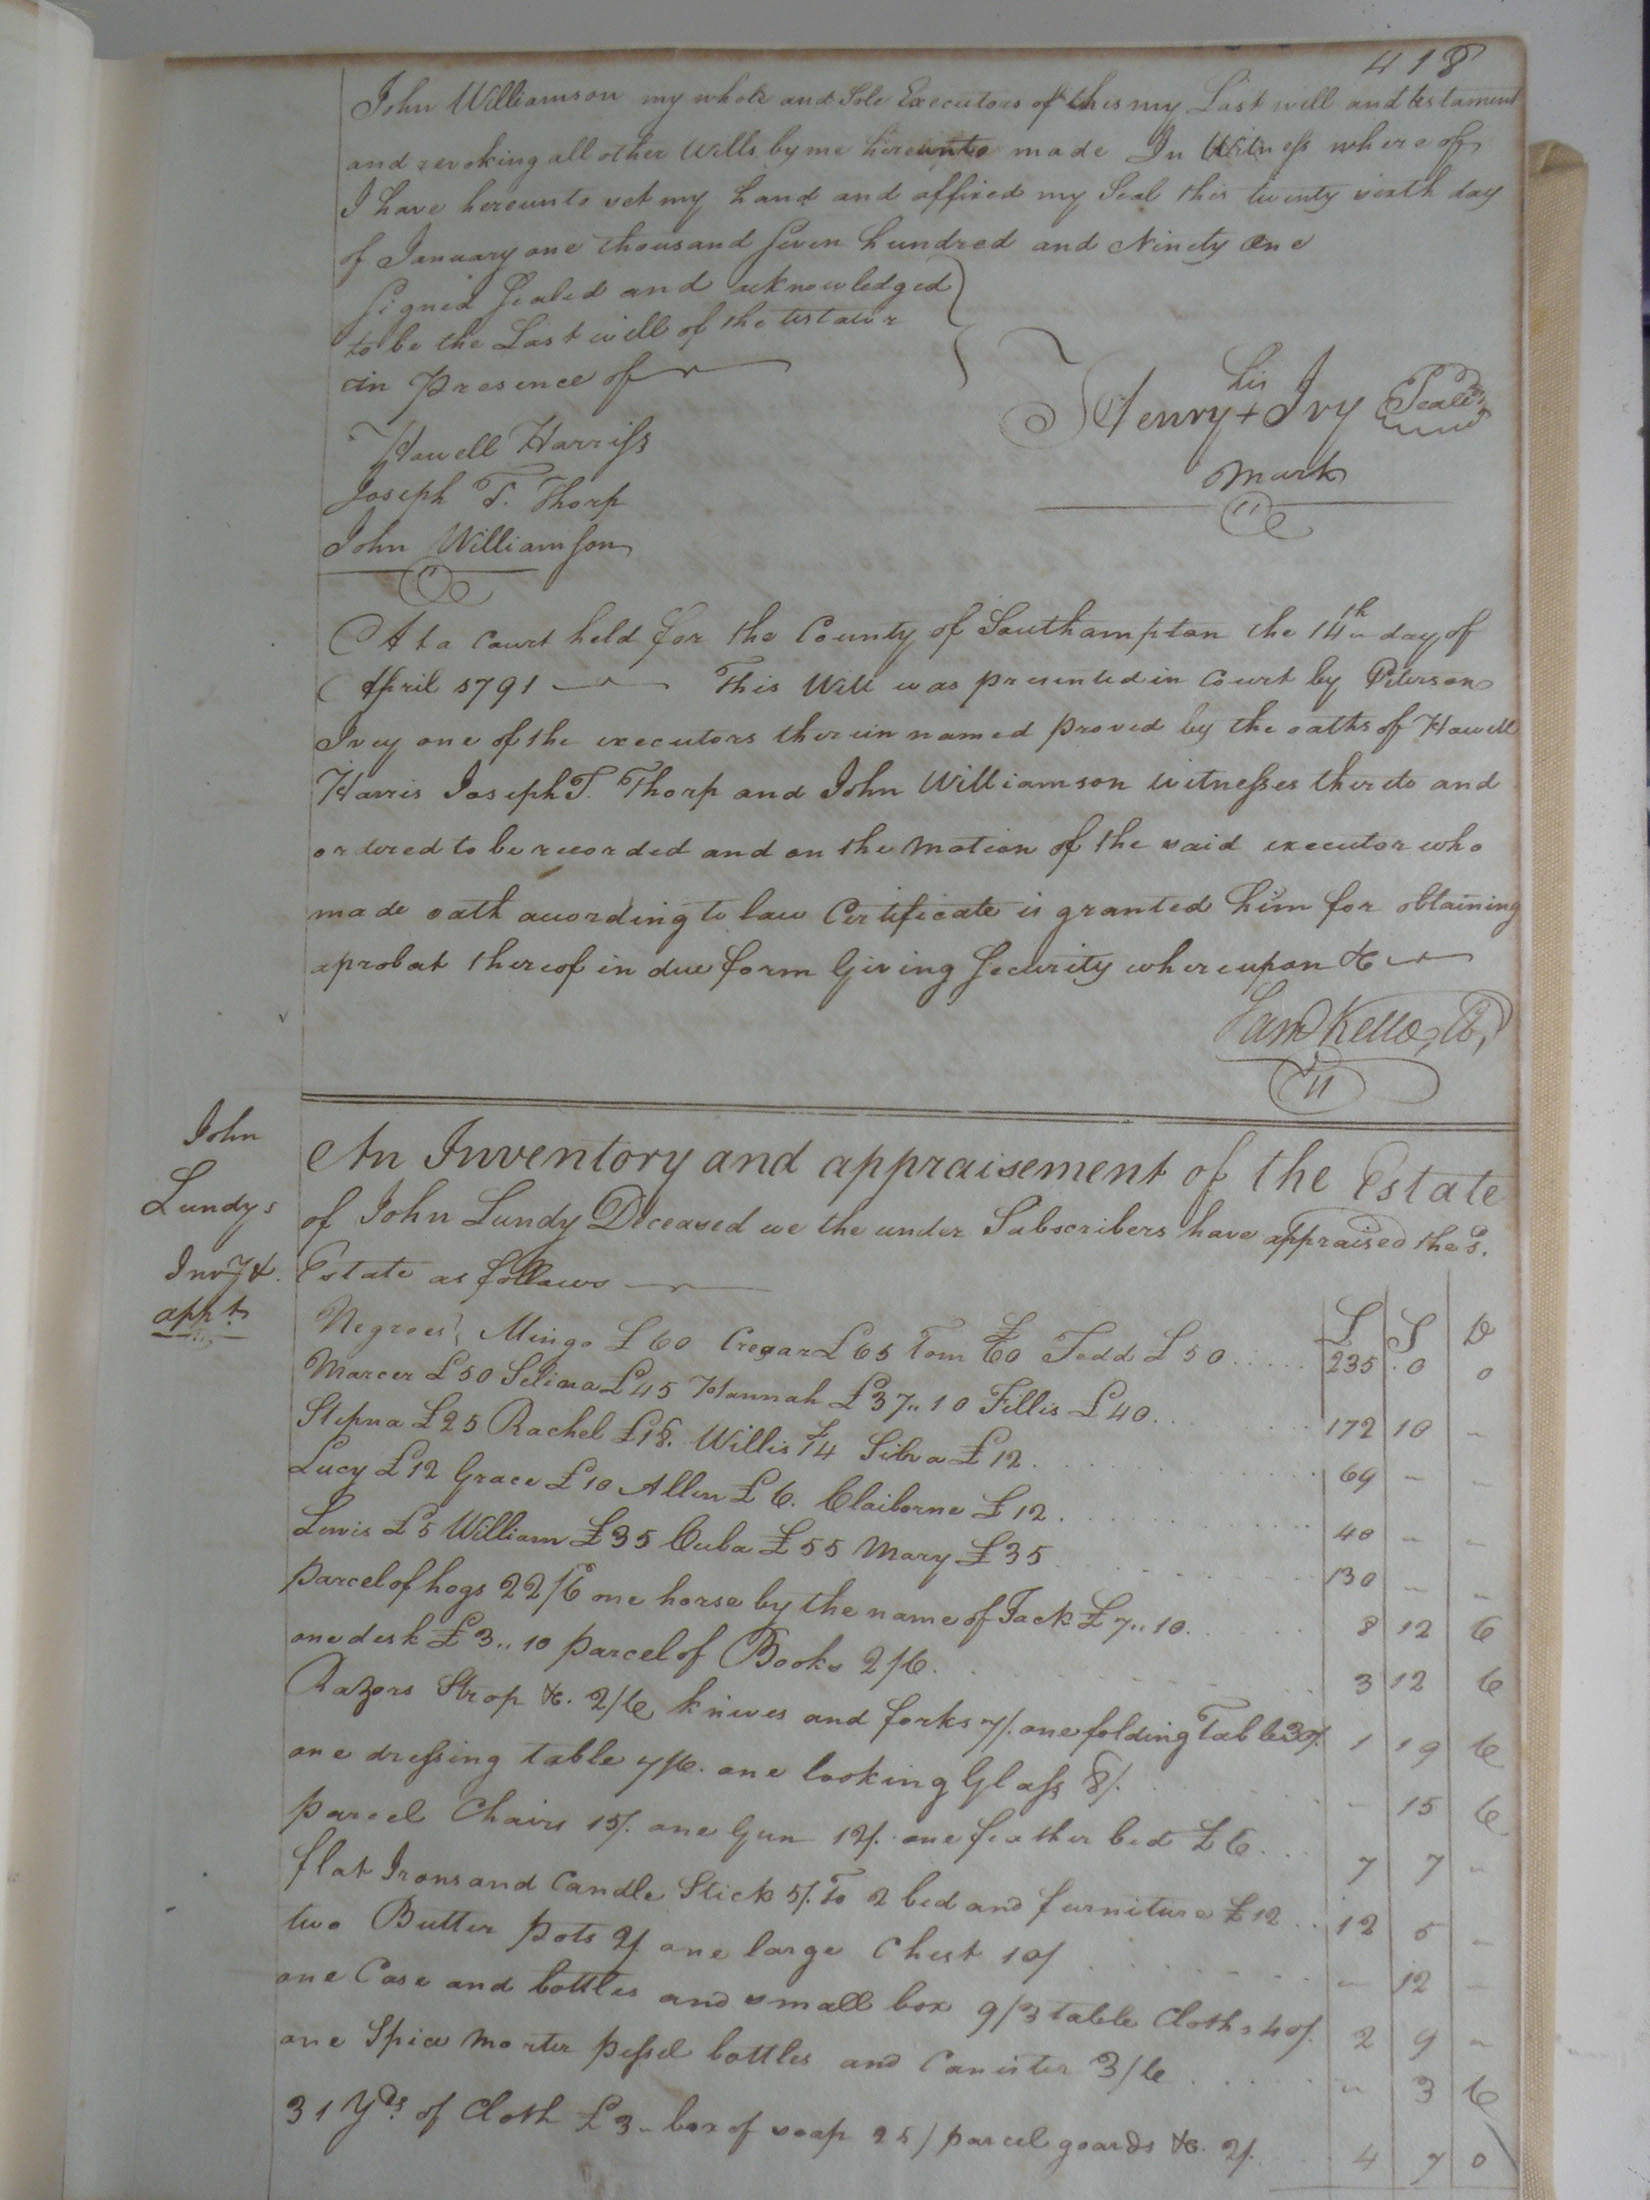 418
John Williamson my whole and Sole Executors of this my Last will and testament
and revoking all other Wills by me hereunto made In Witness where of
I have hereunto set my hand and affixed my Seal this twenty sixth day
of January one thousand Seven hundred and Ninety One
Signed Sealed and acknowledged
to be the Last will of the testator
in Presence of
Howell Harriss
Joseph T. Thorp
John Williamson
his
Henry + Ivy Seal
mark
At a Court held for the County of Southampton the 14th day of
April 1791 This Will was presented in Court by Peterson
Ivey one of the executors therein named proved by the oaths of Howell
Harris Joseph T. Thorp and John Williamson witnesses thereto and
ordered to be recorded and on the motion of the said executor who
made oath acording to law Certificate is granted him for obtaining
aprobat thereof in due form Giving Security whereupon &c
Saml Kello, Ct,
John
Lundys
Invy &
appt
An Inventory and appraisement of the Estate
of John Lundy Deceased we the under Subscribers have appraised the sd.
Estate as follows
£ S D
Negroes, Mingo £60 Cregar £65 Tom £60 Tedd £50 ..... 235 . 0 0
Marcer £50 Selina £45 Hannah £37,,10 Fillis £40 . . . 172 10 -
Stepna £25 Rachel £18. Willis £14 Silva £12 . . . 69 - -
Lucy £12 Grace £10 Allen £6. Claiborne £12 . . . 40 - -
Lewis £5 William £35 Cuba £55 Mary £35 . . . 130 - -
Parcel of hogs 22/6 one horse by the name of Jack £7,,10. . . . 8 12 6
one desk £3,,10 parcel of Books 2/6. . . . 3 12 6
Razors Strop &c. 2/6 knives and forks 7/. one folding Table 30/. 1 19 6
one dressing table 7/6. one looking Glass 8/. . . . - 15 6
parcel Chairs 15/. one Gun 12/. one feather bed £6. . . 7 7 -
flat Irons and Candle Stick 5/. To 2 bed and furniture £12 . . 12 5 -
two Butter Pots 2/. one large Chest 10/ . . . - 12 -
one Case and bottles and small box 9/ 3 table Cloths 40/. 2 9 -
one Spice morter pessel bottles and Canister 3/6 . . . - 3 6
31 Yds of Cloth £3 - box of soap 25/ parcel goards &c. 2/. . . 4 7 0